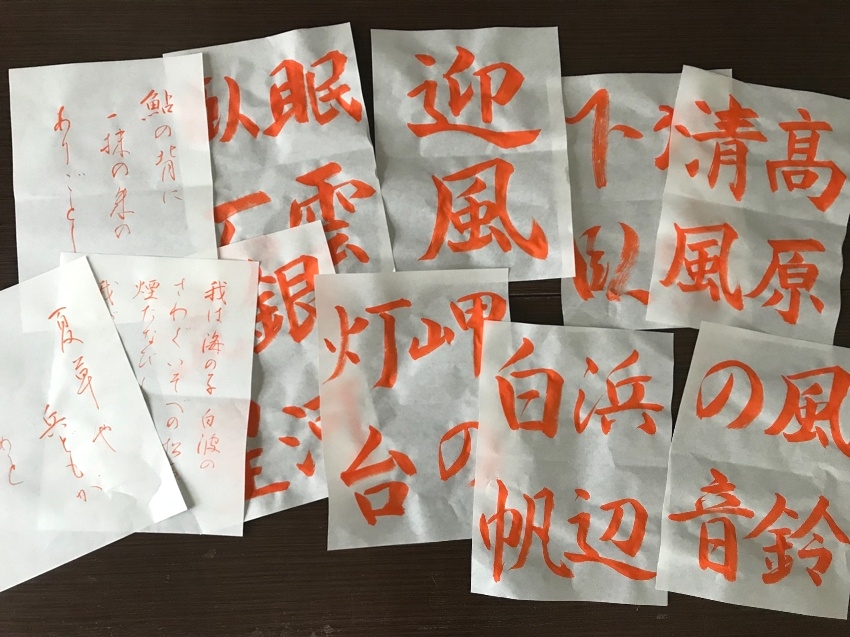 鮎の背に
一抹の朱の
ありごとし
眠雲
臥
迎風
下臥
高原
清風
夏草や
兵どもが
我は海の子 白波の
さわぐいそべの松
煙たなび
銀
岬の
灯台
浜辺
白帆
風鈴
の音